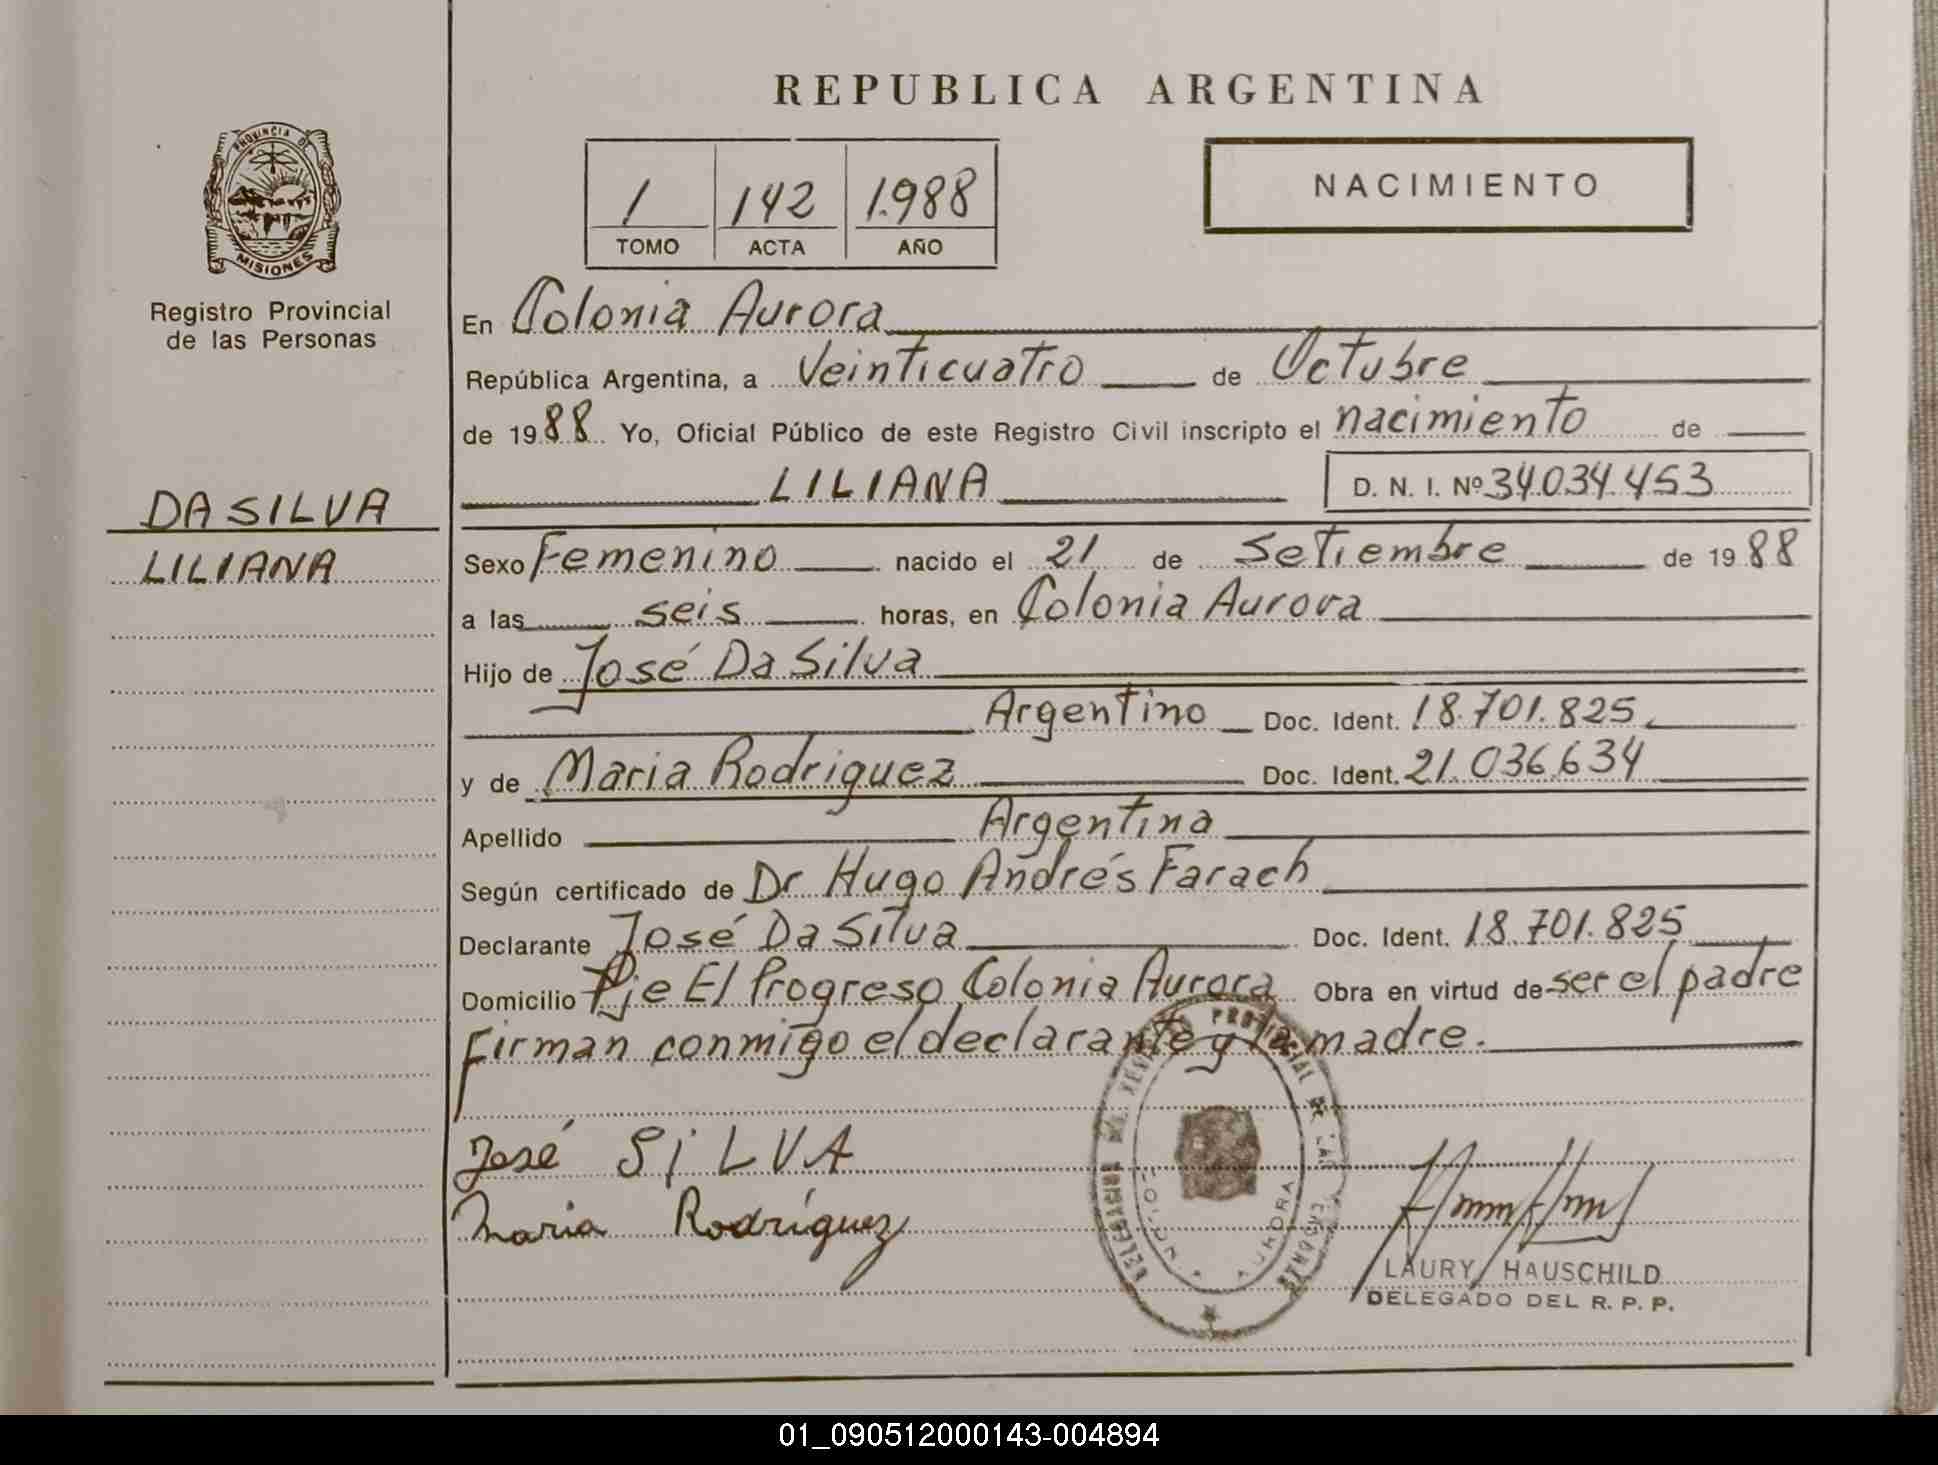 REPUBLICA ARGENTINA
PROVINCIA DE
MISIONES
Registro Provincial
de las Personas
1 142 1.988
TOMO ACTA AÑO
NACIMIENTO
En Colonia Aurora
República Argentina, a Veinticuatro de Octubre
de 1988 Yo, Oficial Público de este Registro Civil inscripto el nacimiento de
LILIANA D. N. I. Nº 34.034.453
DA SILVA
LILIANA
Sexo Femenino nacido el 21 de Setiembre de 1988
a las seis horas, en Colonia Aurora
Hijo de José Da Silva
Argentino Doc. Ident. 18.701.825
y de Maria Rodriguez Doc. Ident. 21.036.634
Apellido Argentina
Según certificado de Dr Hugo Andrés Farach
Declarante José Da Silva Doc. Ident. 18.701.825
Domicilio Pje El Progreso Colonia Aurora Obra en virtud de ser el padre
Firman conmigo el declarante y la madre.
José SiLVA
Maria Rodríguez
COLONIA AURORA
LAURY HAUSCHILD
DELEGADO DEL R. P. P.
01_090512000143-004894